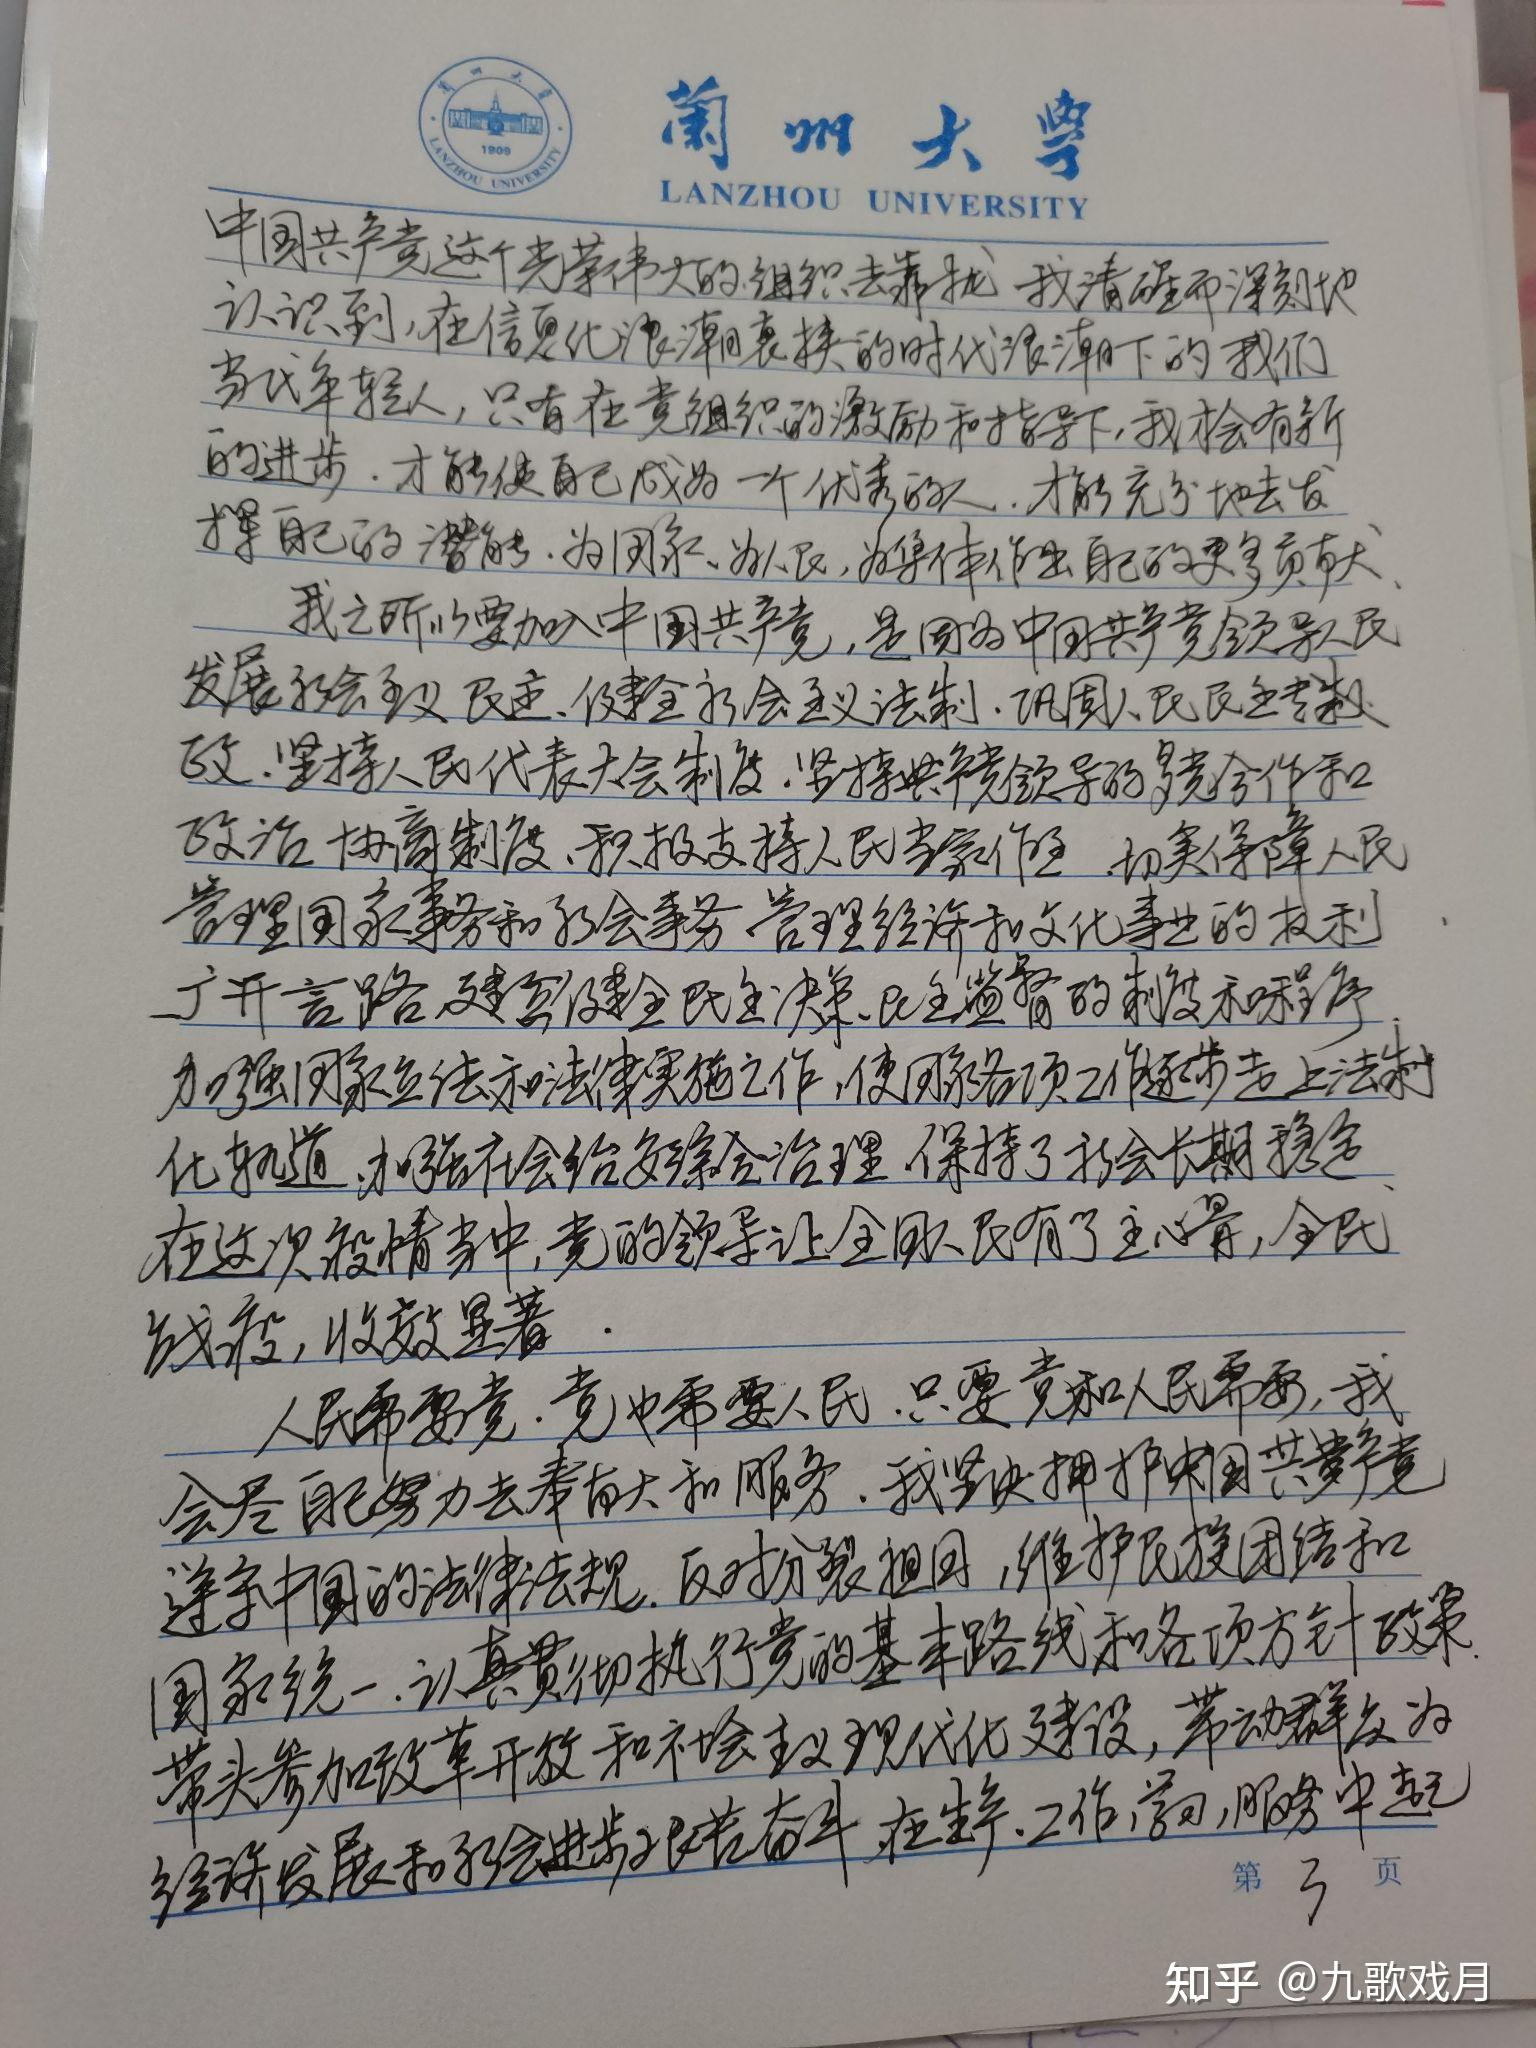 兰州大学
1909
LANZHOU UNIVERSITY
蘭州大学
LANZHOU UNIVERSITY
中国共产党这个光荣伟大的组织去靠拢 我清醒而深刻地
认识到,在信息化浪潮裹挟的时代浪潮下的我们
当代年轻人,只有在党组织的激励和指导下,我才会有新
的进步.才能使自己成为一个优秀的人.才能充分地去发
挥自己的潜能.为国家、为人民,为集体作出自己的更多贡献.
我之所以要加入中国共产党,是因为中国共产党领导人民
发展社会主义民主、健全社会主义法制.巩固人民民主专制
政.坚持人民代表大会制度.坚持共产党领导的多党合作和
政治协商制度、积极支持人民当家作主 .切实保障人民
管理国家事务和社会事务、管理经济和文化事业的权利
广开言路 建立健全民主决策、民主监督的制度和程序.
加强国家立法和法律实施工作,使国家各项工作逐步走上法制
化轨道、加强社会治安综合治理.保持了社会长期稳定
在这次疫情当中,党的领导让全国人民有了主心骨,全民
战疫,收效显著.
人民需要党.党也需要人民.只要党和人民需要,我
会尽自己努力去奉献和服务.我坚决拥护中国共产党
遵守中国的法律法规.反对分裂祖国,维护民族团结和
国家统一.认真贯彻执行党的基本路线和各项方针政策.
带头参加改革开放和社会主义现代化建设,带动群众为
经济发展和社会进步艰苦奋斗 在生产、工作,学习,服务中起
第 3 页
知乎 @九歌戏月